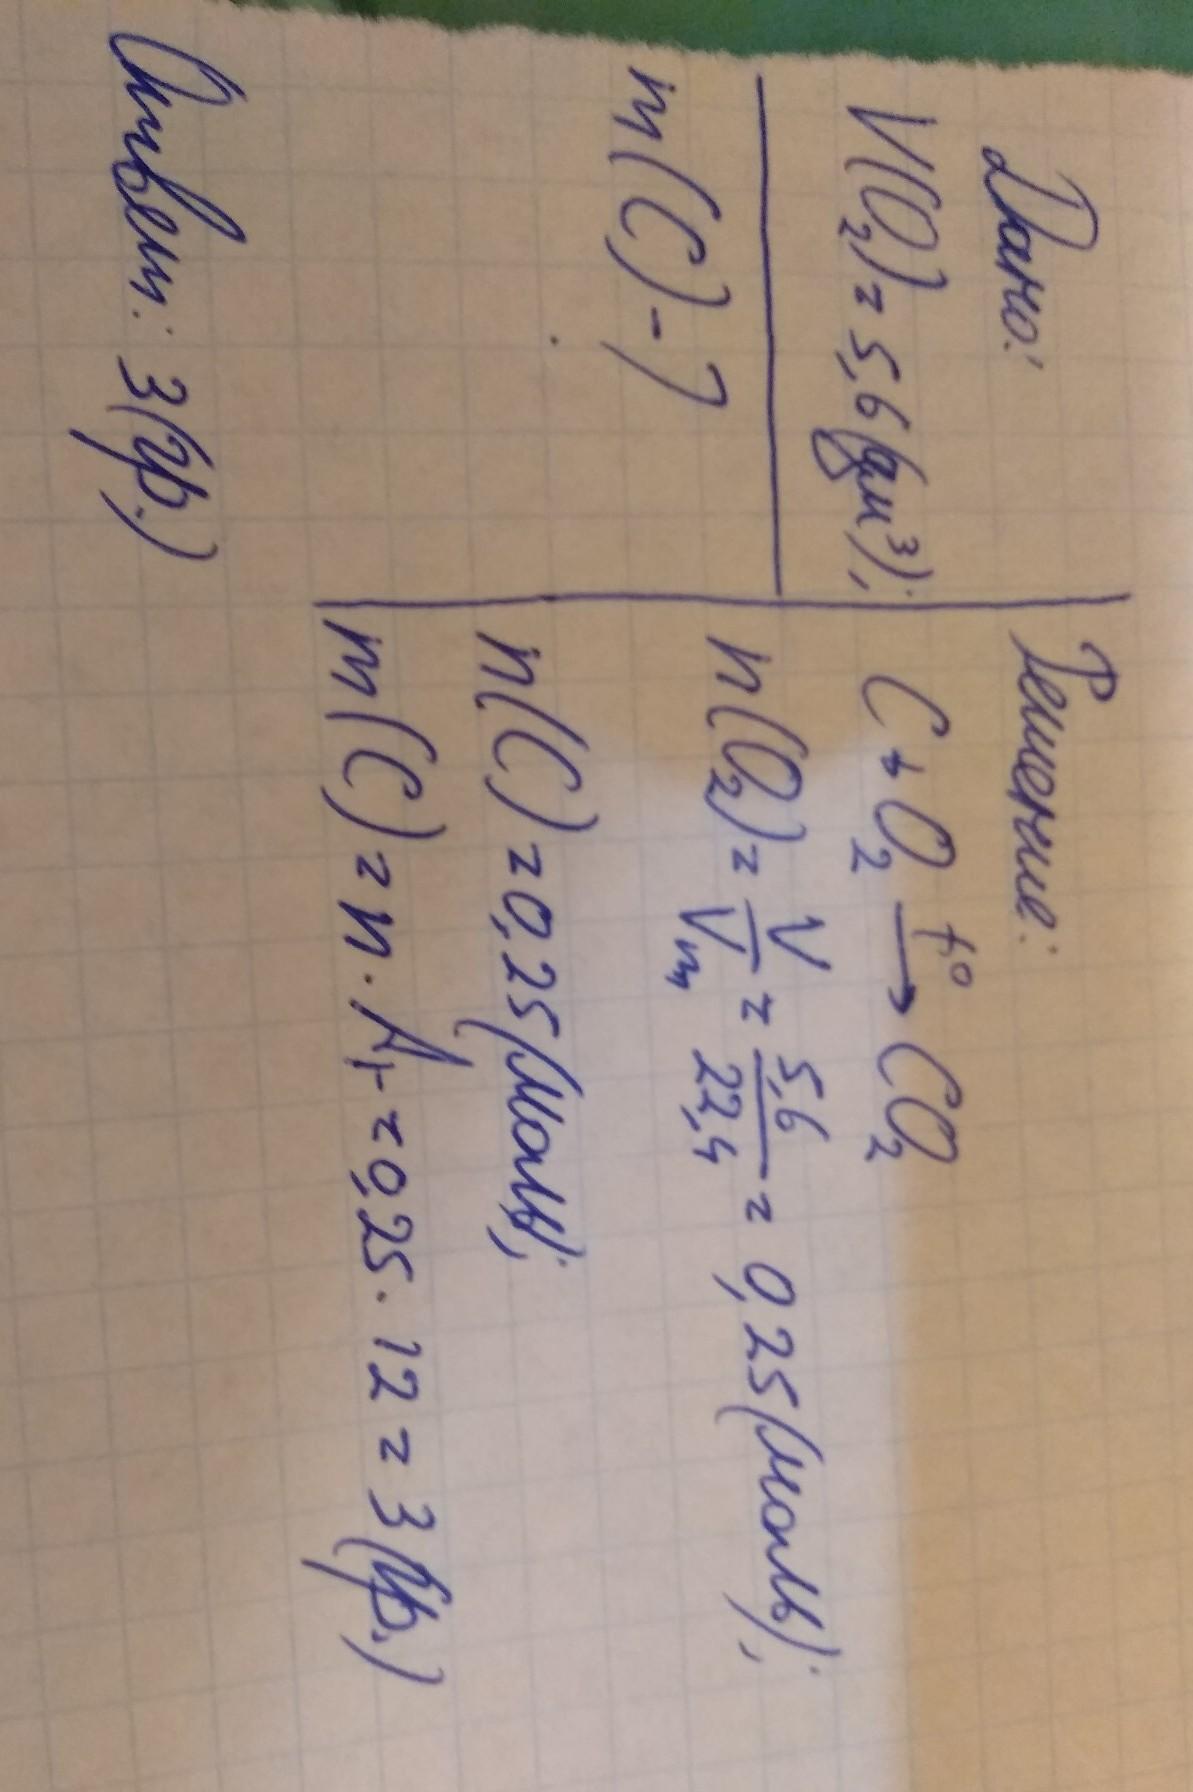 Дано:
V(O₂) = 5,6 (дм³);
m(C) - ?
Решение:
C + O₂ t° → CO₂
n(O₂) = V/Vm = 5,6/22,4 = 0,25 (моль);
n(C) = 0,25 (моль);
m(C) = n · Ar = 0,25 · 12 = 3 (гр.)
Ответ: 3 (гр.)